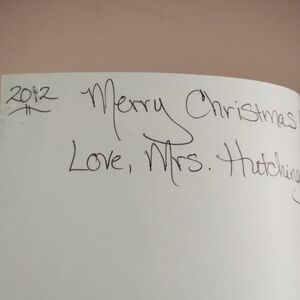 2012 Merry Christmas!
Love, Mrs. Hutchings